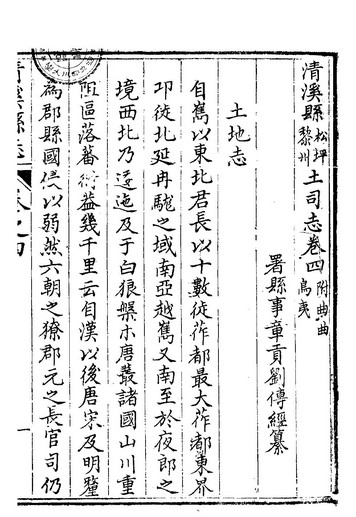 清溪縣松坪黎州土司志卷四附曲曲烏夷
署縣事章貢劉傳經纂
土地志
自雟以東北君長以十數徙莋都最大莋都東界
卭徙北延冉駹之域南亞越雟又南至於夜郎之
境西北乃逶迤及于白狼槃木唐叢諸國山川重
阻區落蕃衍益幾千里云自漢以後唐宋及明釐
為郡縣國侵以弱然六朝之獠郡元之長官司仍
清溪縣志
卷之四
一